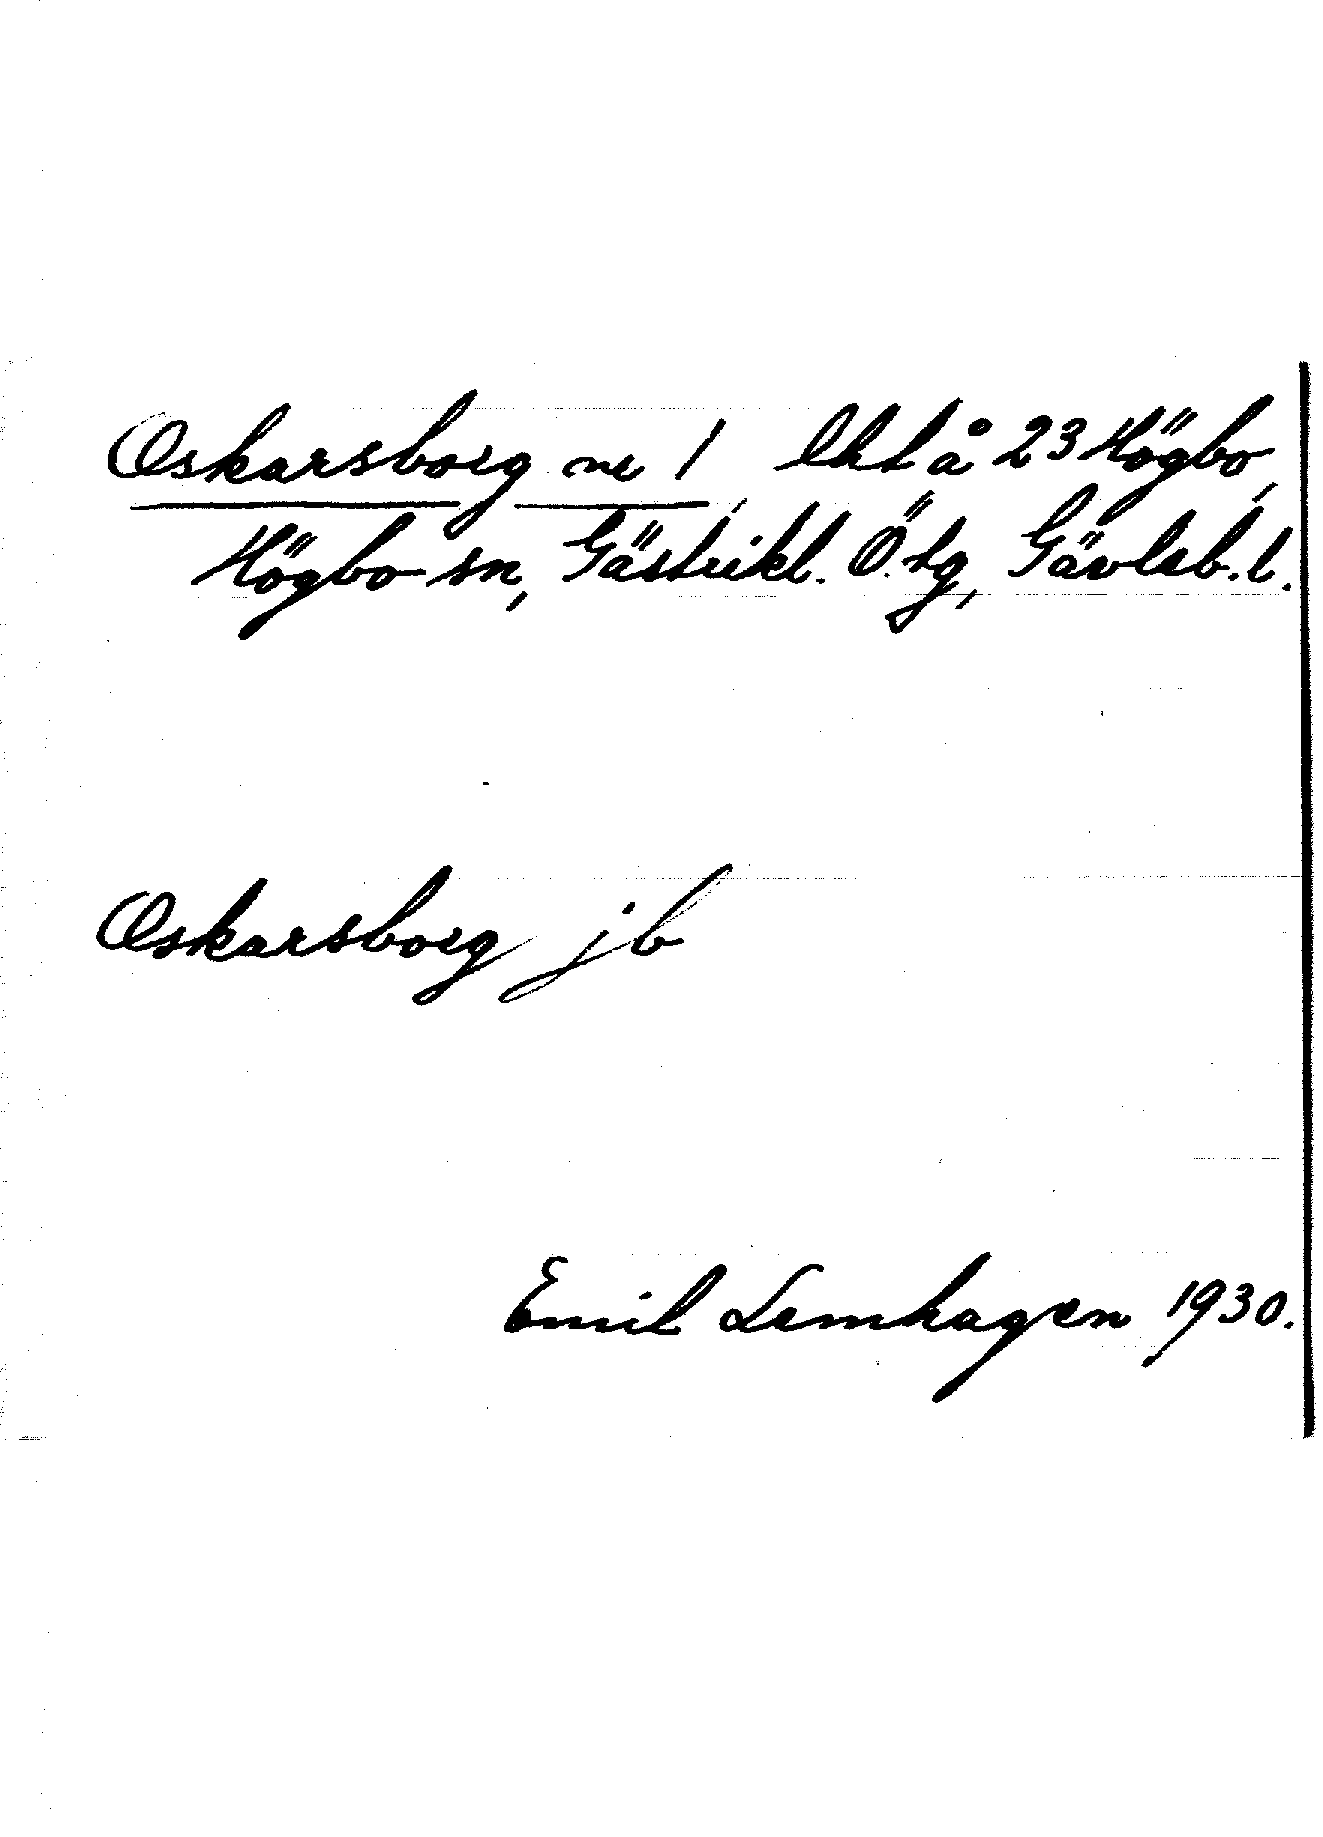 Oskarsborg nr 1, lht å 23 Högbo,
Högbo sn, Gästrikl. Ö. tg, Gävleb. l.
Oskarsborg jb
Emil Lemhagen 1930.